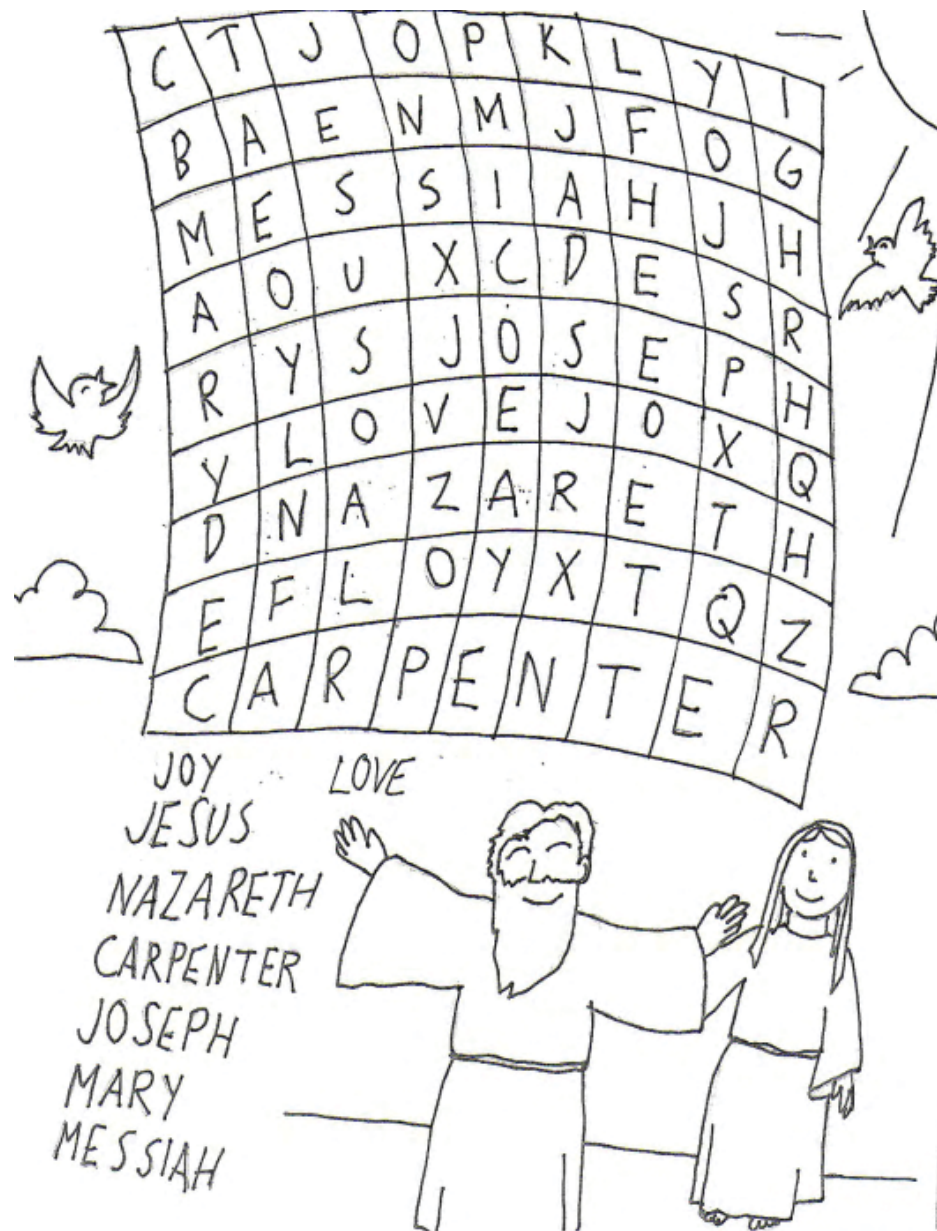 C T J O P K L Y I
B A E N M J F O G
M E S S I A H J H
A O U X C D E S R
R Y S J O S E P H
Y L O V E J O X Q
D N A Z A R E T H
E F L O Y X T Q Z
C A R P E N T E R
JOY LOVE
JESUS
NAZARETH
CARPENTER
JOSEPH
MARY
MESSIAH